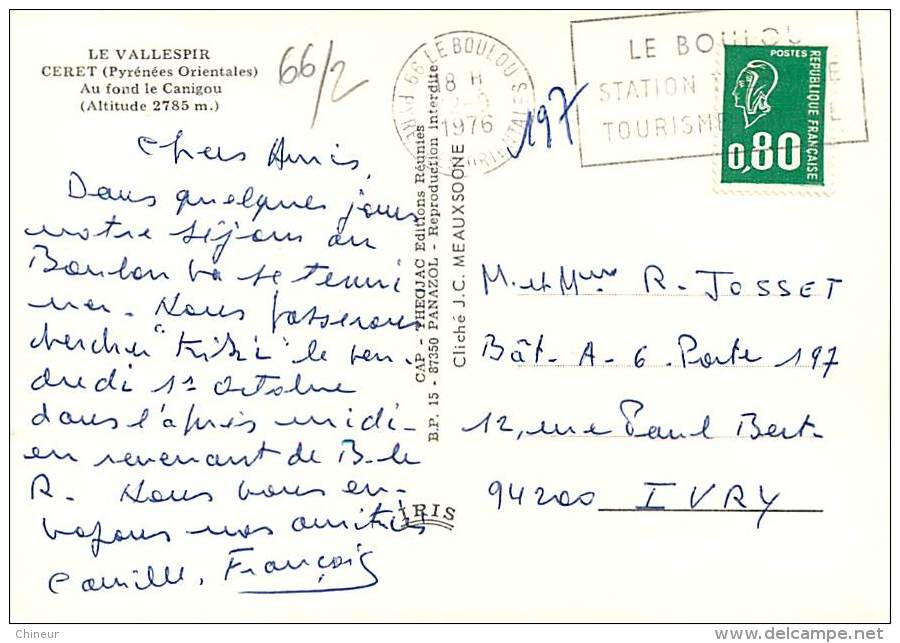 LE VALLESPIR
CERET (Pyrénées Orientales)
Au fond le Canigou
(Altitude 2785 m.)
66/2
Chers Amis,
Dans quelques jours
notre séjour au
Boulou va se termi
ner. Nous passerons
chercher "Kiki" le ven-
dredi 1er Octobre
dans l'après midi-
en revenant de B. le
R. Nous vous en-
voyons nos amitiés
Camille, François
CAP - THEOJAC Editions Réunies
B.P. 15 - 87350 PANAZOL - Reproduction interdite
Cliché J.C. MEAUXSOONE
IRIS
66 LE BOULOU
8 H
1976
ORIENTALES
197
LE BOULOU
STATION
TOURISME
POSTES
REPUBLIQUE FRANÇAISE
0,80
M. et Mme R. JOSSET
Bât. A-6 Porte 197
12, rue Paul Bert.
94200 IVRY
Chineur
delcampe.net